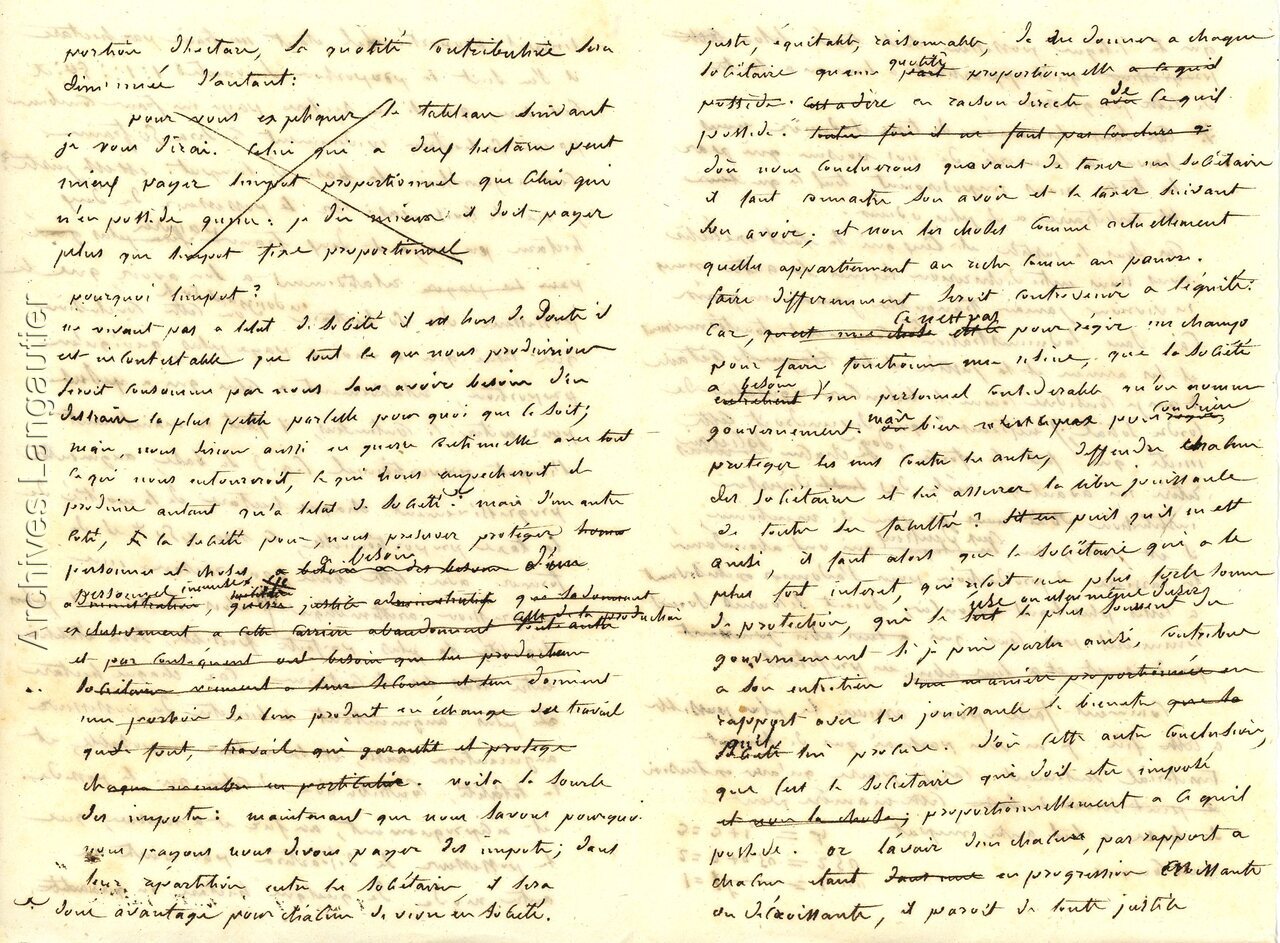 portion d'hectare, la quotité contributive sera
diminuée d'autant:
pour vous expliquer le tableau suivant
je vous dirai. celui qui a deux hectare peut
mieux payer l'impot proportionnel que celui qui
n'en possède qu'un: je dis mieux il doit payer
plus que l'impot fixe proportionnel
pourquoi l'impot?
ne vivant pas a l'etat de société il est hors de doute il
est incontestable que tout ce que nous produirions
seroit consommé par nous sans avoir besoin d'en
distraire la plus petite parcelle pour quoi que ce soit;
mais, nous serions aussi en guerre continuelle avec tout
ce qui nous entoureroit, ce qui nous empecheroit de
produire autant qu'a l'etat de société. mais d'un autre
coté, la société pour nous preserver proteger
personnes et choses a besoin
personnel
administration, guerre justice administratif que se donnant
exclusivement a cette carriere abandonnent toute autre celle de la production
et par conséquent ont besoin que les producteurs
sociétaires viennent a leur secours et leur donnent
une portion de leur produit en échange de travail
que font, travail qui garantit et protege
chaque membre en particulier. voila la source
des impots: maintenant que nous savons pourquoi
nous payons nous devons payer des impots; dans
leur répartition entre les sociétaires, il sera
donc avantage pour chacun de vivre en société.
juste, équitable, raisonnable, de donner a chaque
sociétaire qu'une part quotité proportionnelle a ce qu'il
possède. c'est a dire en raison directe de ce qu'il
possède. toutes fois il ne faut pas conclure q
d'où nous conclurons qu'avant de taxer un sociétaire
il faut connaitre son avoir et le taxer suivant
son avoir; et non les choses comme actuellement
qu'elles appartiennent au riche comme au pauvre.
faire differemment seroit contrevenir a l'équité:
car, ce n'est pas pour régir un champ
pour faire fonctionner une usine, que la société
a besoin entretient d'un personnel considerable qu'on nomme
gouvernement. mais bien pour conduire
proteger les uns contre les autres, deffendre chacun
des sociétaires et lui assurer la libre jouissance
de toutes ses facultés? puis qu'il en est
ainsi, il faut alors que le sociétaire qui a le
plus fort interet, qui reçoit une plus forte somme
de protection, qui se sert use le plus souvent du
gouvernement si je puis parler ainsi, contribue
a son entretien d'une manière proportionnée en
rapport avec les jouissances le bienetre que la
société qu'il lui procure. d'où cette autre conclusion,
que c'est le sociétaire qui doit etre imposé
et non la chose, proportionnellement a ce qu'il
possède. or l'avoir d'un chacun, par rapport a
chacun etant dans une en progression croissante
ou décroissante, il paroit de toute justice
Archives Langautier